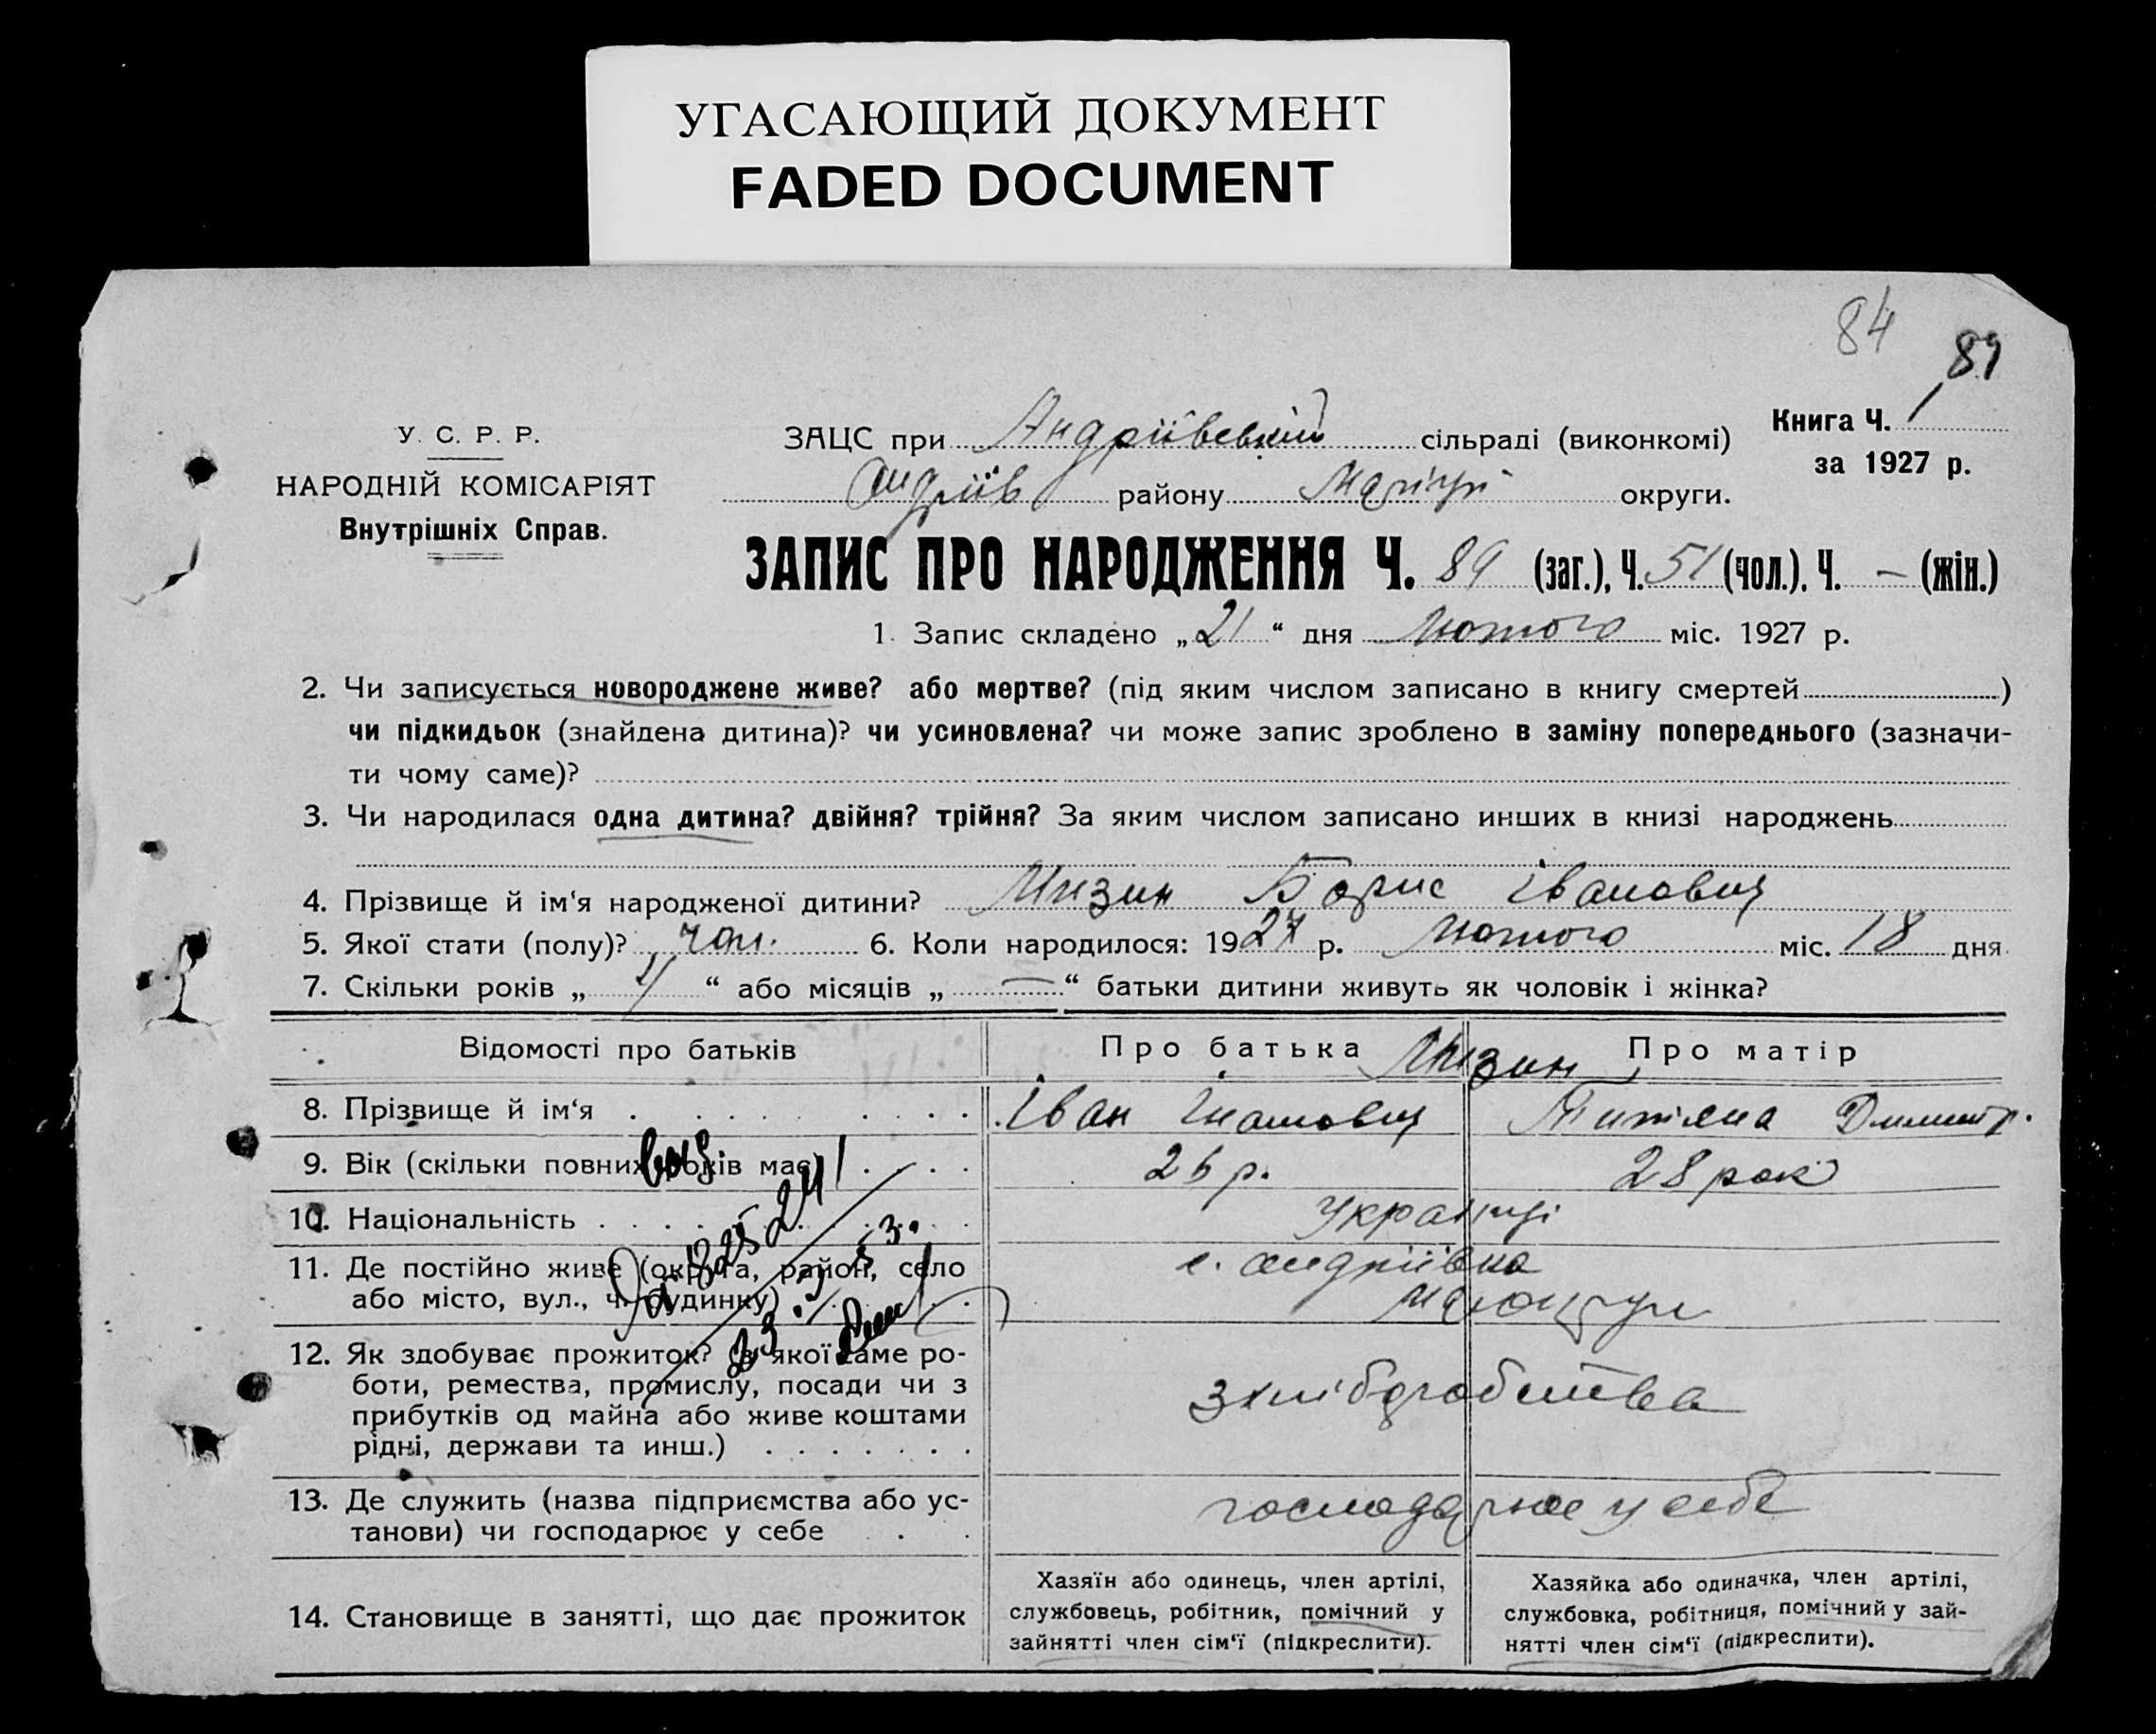 УГАСАЮЩИЙ ДОКУМЕНТ
FADED DOCUMENT
84
89
У. С. Р. Р.
НАРОДНІЙ КОМІСАРІЯТ
Внутрішніх Справ.
ЗАЦС при Андріївській сільраді (виконкомі)
Книга Ч. 1
за 1927 р.
Андріїв району округи.
ЗАПИС ПРО НАРОДЖЕННЯ Ч. 89 (заг.), Ч. 51 (чол.), Ч. — (жін.)
1. Запис складено „21“ дня Лютого міс. 1927 р.
2. Чи записується новороджене живе? або мертве? (під яким числом записано в книгу смертей )
чи підкидьок (знайдена дитина)? чи усиновлена? чи може запис зроблено в заміну попереднього (зазначи-
ти чому саме)?
3. Чи народилася одна дитина? двійня? трійня? За яким числом записано инших в книзі народжень
4. Прізвище й ім'я народженої дитини? Мизин Борис Іванович
5. Якої стати (полу)? чол. 6. Коли народилося: 1927 р. Лютого міс. 18 дня
7. Скільки років „ “ або місяців „—“ батьки дитини живуть як чоловік і жінка?
Відомості про батьків
Про батька Мизин Про матір
8. Прізвище й ім'я Іван Іванович Титяна Димитр.
9. Вік (скільки повних років має) 26 р. 28 рок
10. Національність Українці
11. Де постійно живе (округа, район, село с. Андріївка
або місто, вул., ч. будинку)
12. Як здобуває прожиток? (з якої саме ро-
боти, ремества, промислу, посади чи з хліборобства
прибутків од майна або живе коштами
рідні, держави та инш.)
13. Де служить (назва підприємства або ус- господарює у себе
танови) чи господарює у себе
14. Становище в занятті, що дає прожиток
Хазяїн або одинець, член артілі,
службовець, робітник, помічний у
зайнятті член сім'ї (підкреслити).
Хазяйка або одиначка, член артілі,
службовка, робітниця, помічний у зай-
нятті член сім'ї (підкреслити).